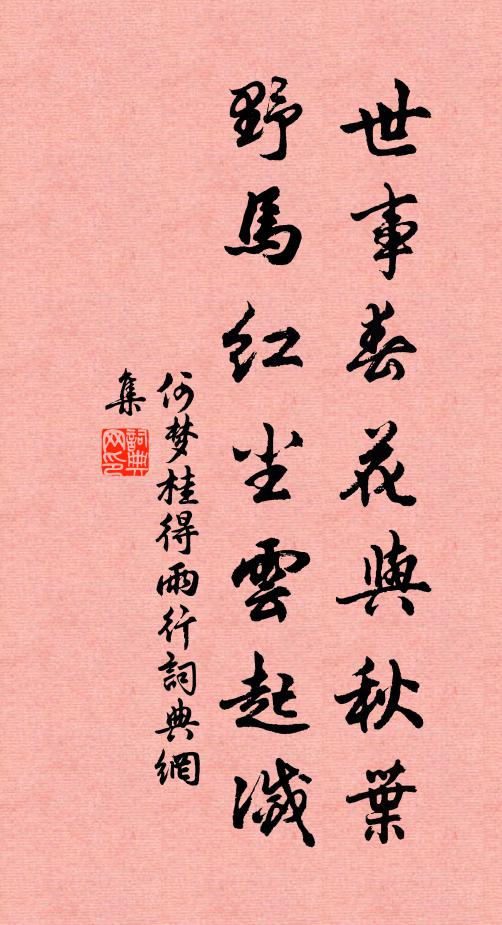 世事春花與秋葉
野馬红尘雲起滅
何梦桂得雨行詞典網
集
詞典网印